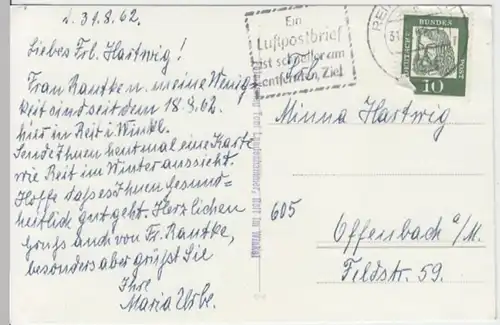 d. 31.8.62.
Liebes Frl. Hartwig!
Frau Rautke u. meine Wenig-
keit sind seit dem 18.8.62.
hier in Reit i/Winkl.
Sende Ihnen heut mal eine Karte
wie Reit im Winter aussieht.
Hoffe daß es Ihnen Gesund-
heitlich gut geht. Herzlichen
Gruß auch von Fr. Rautke,
besonders aber grüßt Sie
Ihre
Maria Urbe.
Ein
Luftpostbrief
ist schneller am
entfernten Ziel
REIT
31.
DEUTSCHE BUNDESPOST
10
Frl.
Minna Hartwig
605
Offenbach a/M.
Feldstr. 59.
Reit im Winkl